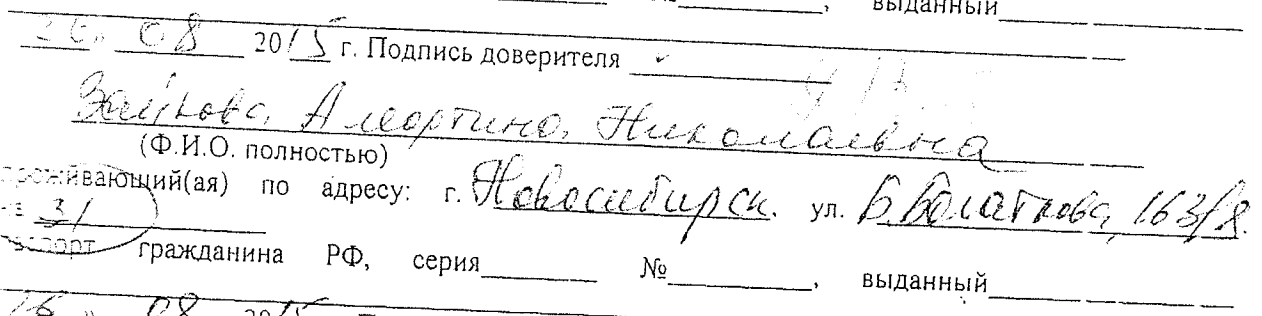 №________, выданный________
26. 08 2015 г. Подпись доверителя
Зайкова Алевтина Николаевна
(Ф.И.О. полностью)
проживающий(ая) по адресу: г. Новосибирск. ул. Б. Богаткова, 163/8.
31
паспорт гражданина РФ, серия________ №________, выданный________
26 » 08 2015